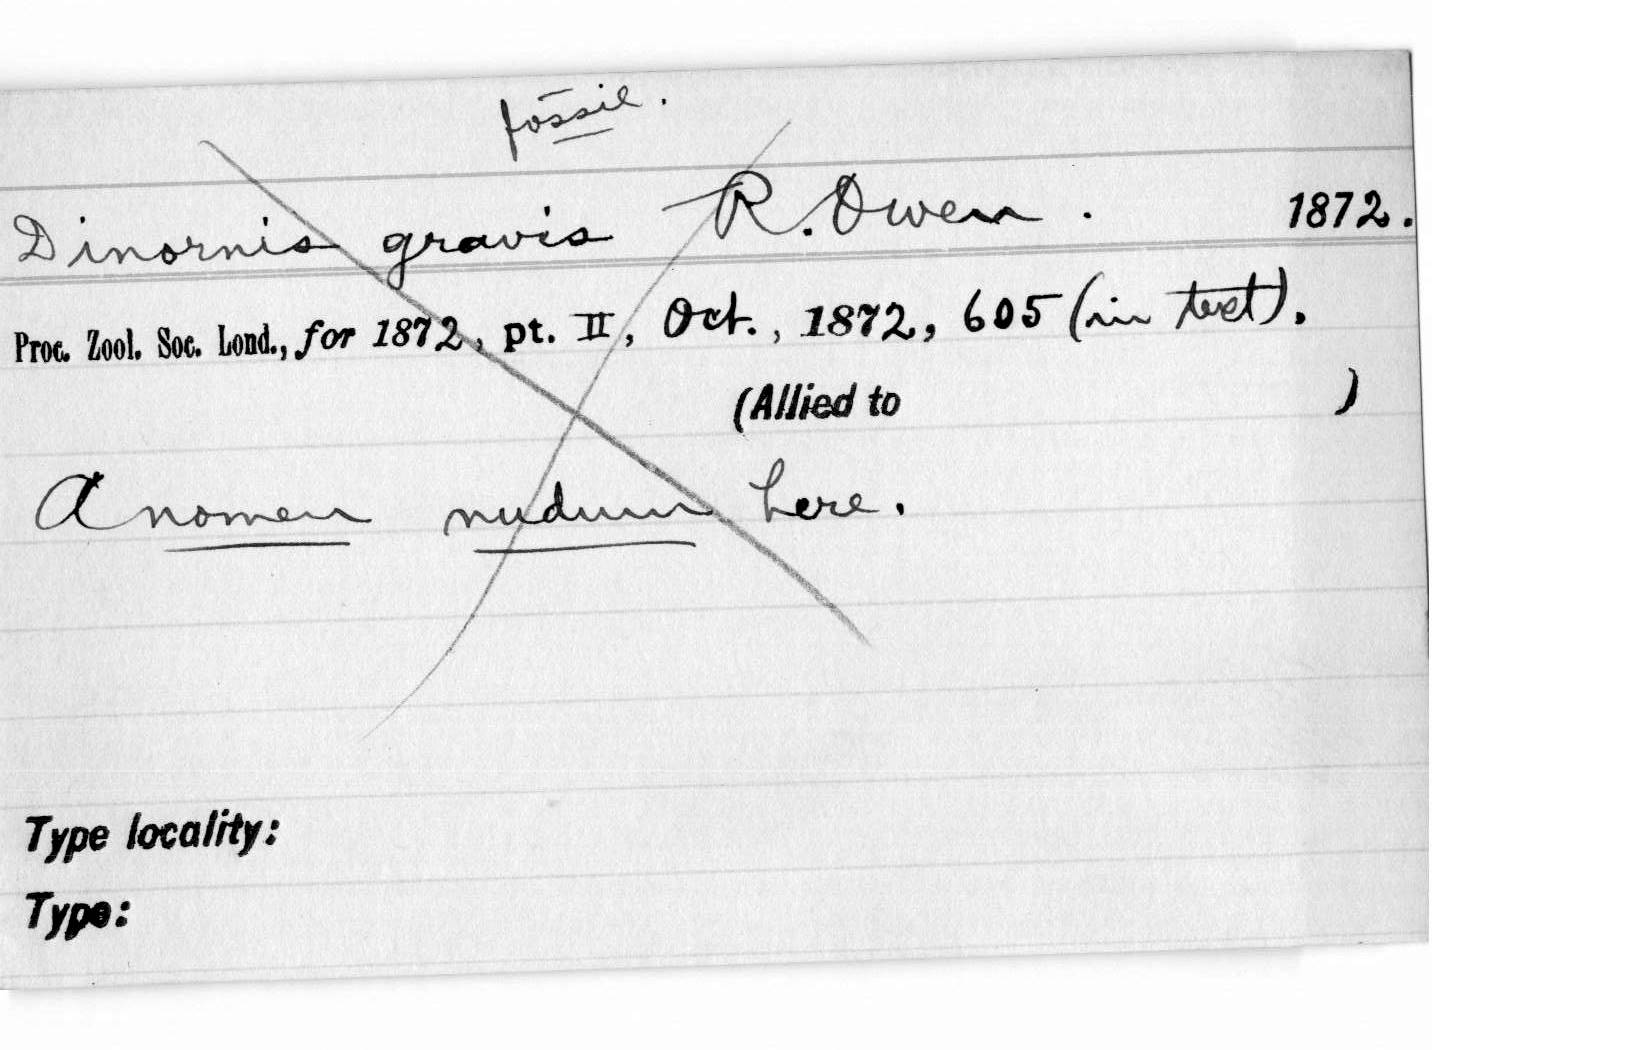 fossil.
Dinornis gravis R. Owen. 1872.
Proc. Zool. Soc. Lond., for 1872, pt. II, Oct., 1872, 605 (in text).
(Allied to )
A nomen nudum here.
Type locality:
Type: